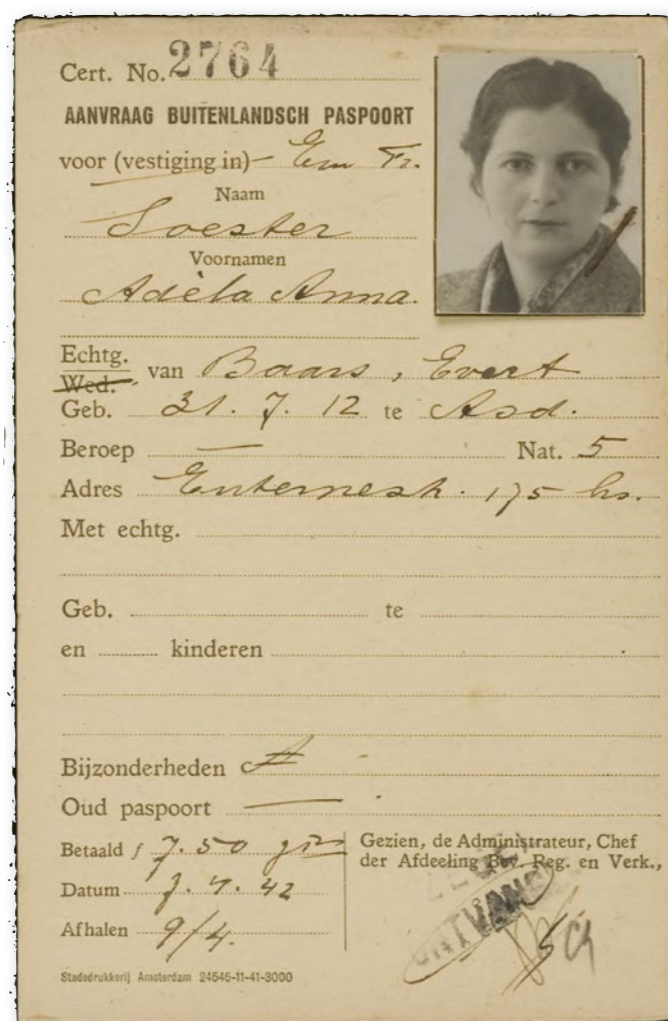 Cert. No. 2764
AANVRAAG BUITENLANDSCH PASPOORT
voor (vestiging in)
Naam
Soester
Voornamen
Adèla Anna.
Echtg.
Wed. van Baars, Evert
Geb. 31. 7. 12 te Asd.
Beroep — Nat. 5
Adres 175 hs.
Met echtg.
Geb. te
en kinderen
Bijzonderheden
Oud paspoort —
Betaald f 7.50
Datum 7.4.42
Afhalen 9/4.
Gezien, de Administrateur, Chef
der Afdeeling Bev. Reg. en Verk.,
ONTVANG
Stadsdrukkerij Amsterdam 24545-11-41-3000